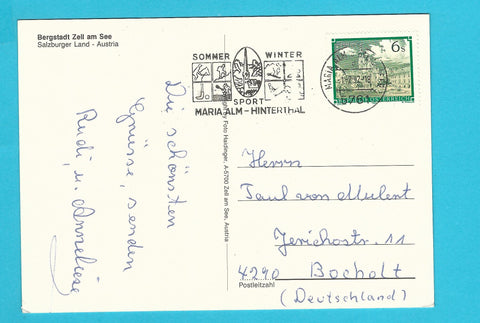 Bergstadt Zell am See
Salzburger Land - Austria
SOMMER WINTER
SPORT
MARIA ALM - HINTERTHAL
6s
MARIA
5761
Die schönsten
Grüsse, senden
Rudi u. Anneliese
Foto Haidinger, A-5700 Zell am See, Austria
Herrn
Paul von Mulert
Jerichostr. 11
4290 Bocholt
Postleitzahl
(Deutschland)